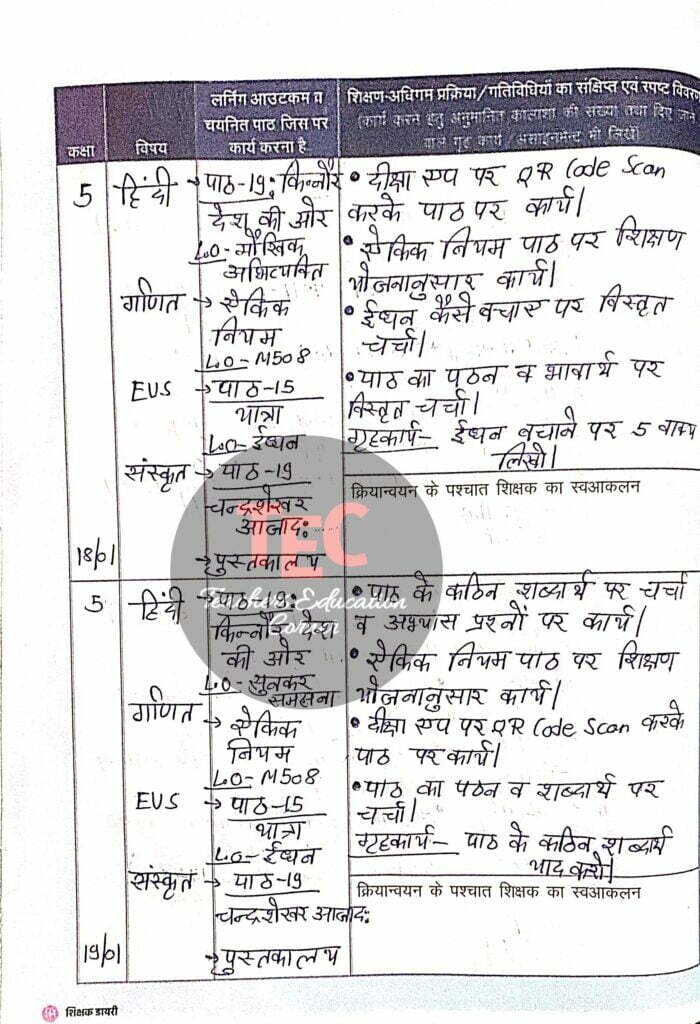 कक्षा
विषय
लर्निंग आउटकम व
चयनित पाठ जिस पर
कार्य करना है
शिक्षण-अधिगम प्रक्रिया/गतिविधियों का संक्षिप्त एवं स्पष्ट विवरण
(कार्य करने हेतु अनुमानित कालांश की संख्या तथा दिए जाने
वाले गृह कार्य /असाइनमेंट भी लिखें)
5
हिंदी → पाठ-19: किन्नौर
देश की ओर
LO- मौखिक
अभिव्यक्ति
गणित → ऐकिक
नियम
LO- M508
EVS → पाठ-15
यात्रा
LO- ईंधन
संस्कृत → पाठ-19
चन्द्रशेखर
आजाद:
→ पुस्तकालय
18/01
• दीक्षा एप पर QR Code Scan
करके पाठ पर कार्य।
• ऐकिक नियम पाठ पर शिक्षण
योजनानुसार कार्य।
• ईंधन कैसे बचाए पर विस्तृत
चर्चा।
• पाठ का पठन व भावार्थ पर
विस्तृत चर्चा।
गृहकार्य- ईंधन बचाने पर 5 वाक्य
लिखो।
क्रियान्वयन के पश्चात शिक्षक का स्वआकलन
TEC
Teachers Education
Corner
5
हिंदी → पाठ-19:
किन्नौर देश
की ओर
LO- सुनकर
समझना
गणित → ऐकिक
नियम
LO- M508
EVS → पाठ-15
यात्रा
LO- ईंधन
संस्कृत → पाठ-19
चन्द्रशेखर आजाद:
→ पुस्तकालय
19/01
• पाठ के कठिन शब्दार्थ पर चर्चा
व अभ्यास प्रश्नों पर कार्य।
• ऐकिक नियम पाठ पर शिक्षण
योजनानुसार कार्य।
• दीक्षा एप पर QR Code Scan करके
पाठ पर कार्य।
• पाठ का पठन व शब्दार्थ पर
चर्चा।
गृहकार्य- पाठ के कठिन शब्दार्थ
याद करो।
क्रियान्वयन के पश्चात शिक्षक का स्वआकलन
शिक्षक डायरी